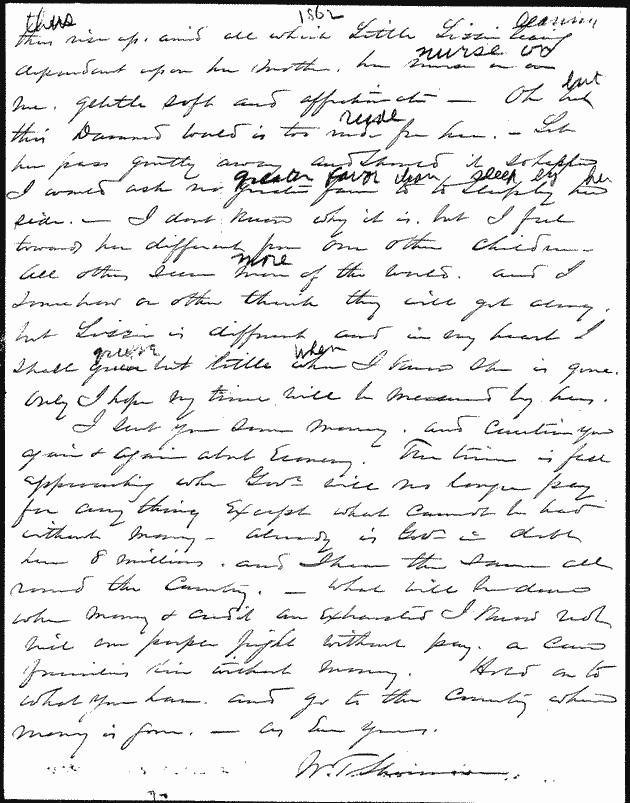 thus 1862 leaning
thus rise up. amid all which Little Lizzie leaning
nurse or
dependent upon her Mother. her nurse or on
but
me. gentle soft and affectionate — Oh but
rude
this Damned world is too rude for her. — Let
her pass quietly away and should it so happen
greater favor than sleep by her
I would ask no greater favor to sleep by her
side. — I dont know why it is. but I feel
towards her different from our other children —
more
all others seem more of the world. and I
somehow or other think they will get along.
but Lizzie is different and in my heart I
grieve when
shall grieve but little when I know she is gone.
only I hope my time will be measured by hers.
I sent you some money. and caution you
again & again about Economy. The time is fast
approaching when Govt. will no longer pay
for any thing Except what cannot be had
without money — already is Govt in debt
here 8 millions. and I hear the same all
round the Country. — what will be done
when money & credit are Exhausted I know not
will our people fight without pay. or can
families live without money. Hold on to
what you have. and go to the Country where
money is gone. — as Ever yours.
W. T. Sherman